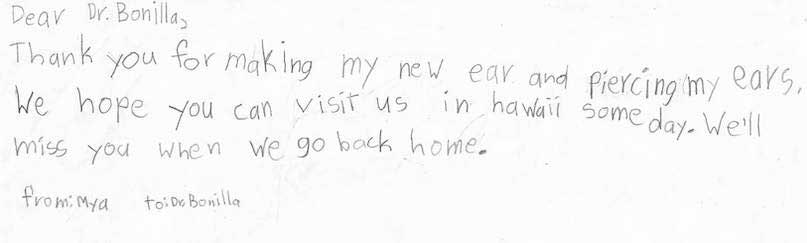 Dear Dr. Bonilla,
Thank you for making my new ear and piercing my ears.
We hope you can visit us in hawaii some day. We'll
miss you when we go back home.
from: Mya to: Dr. Bonilla